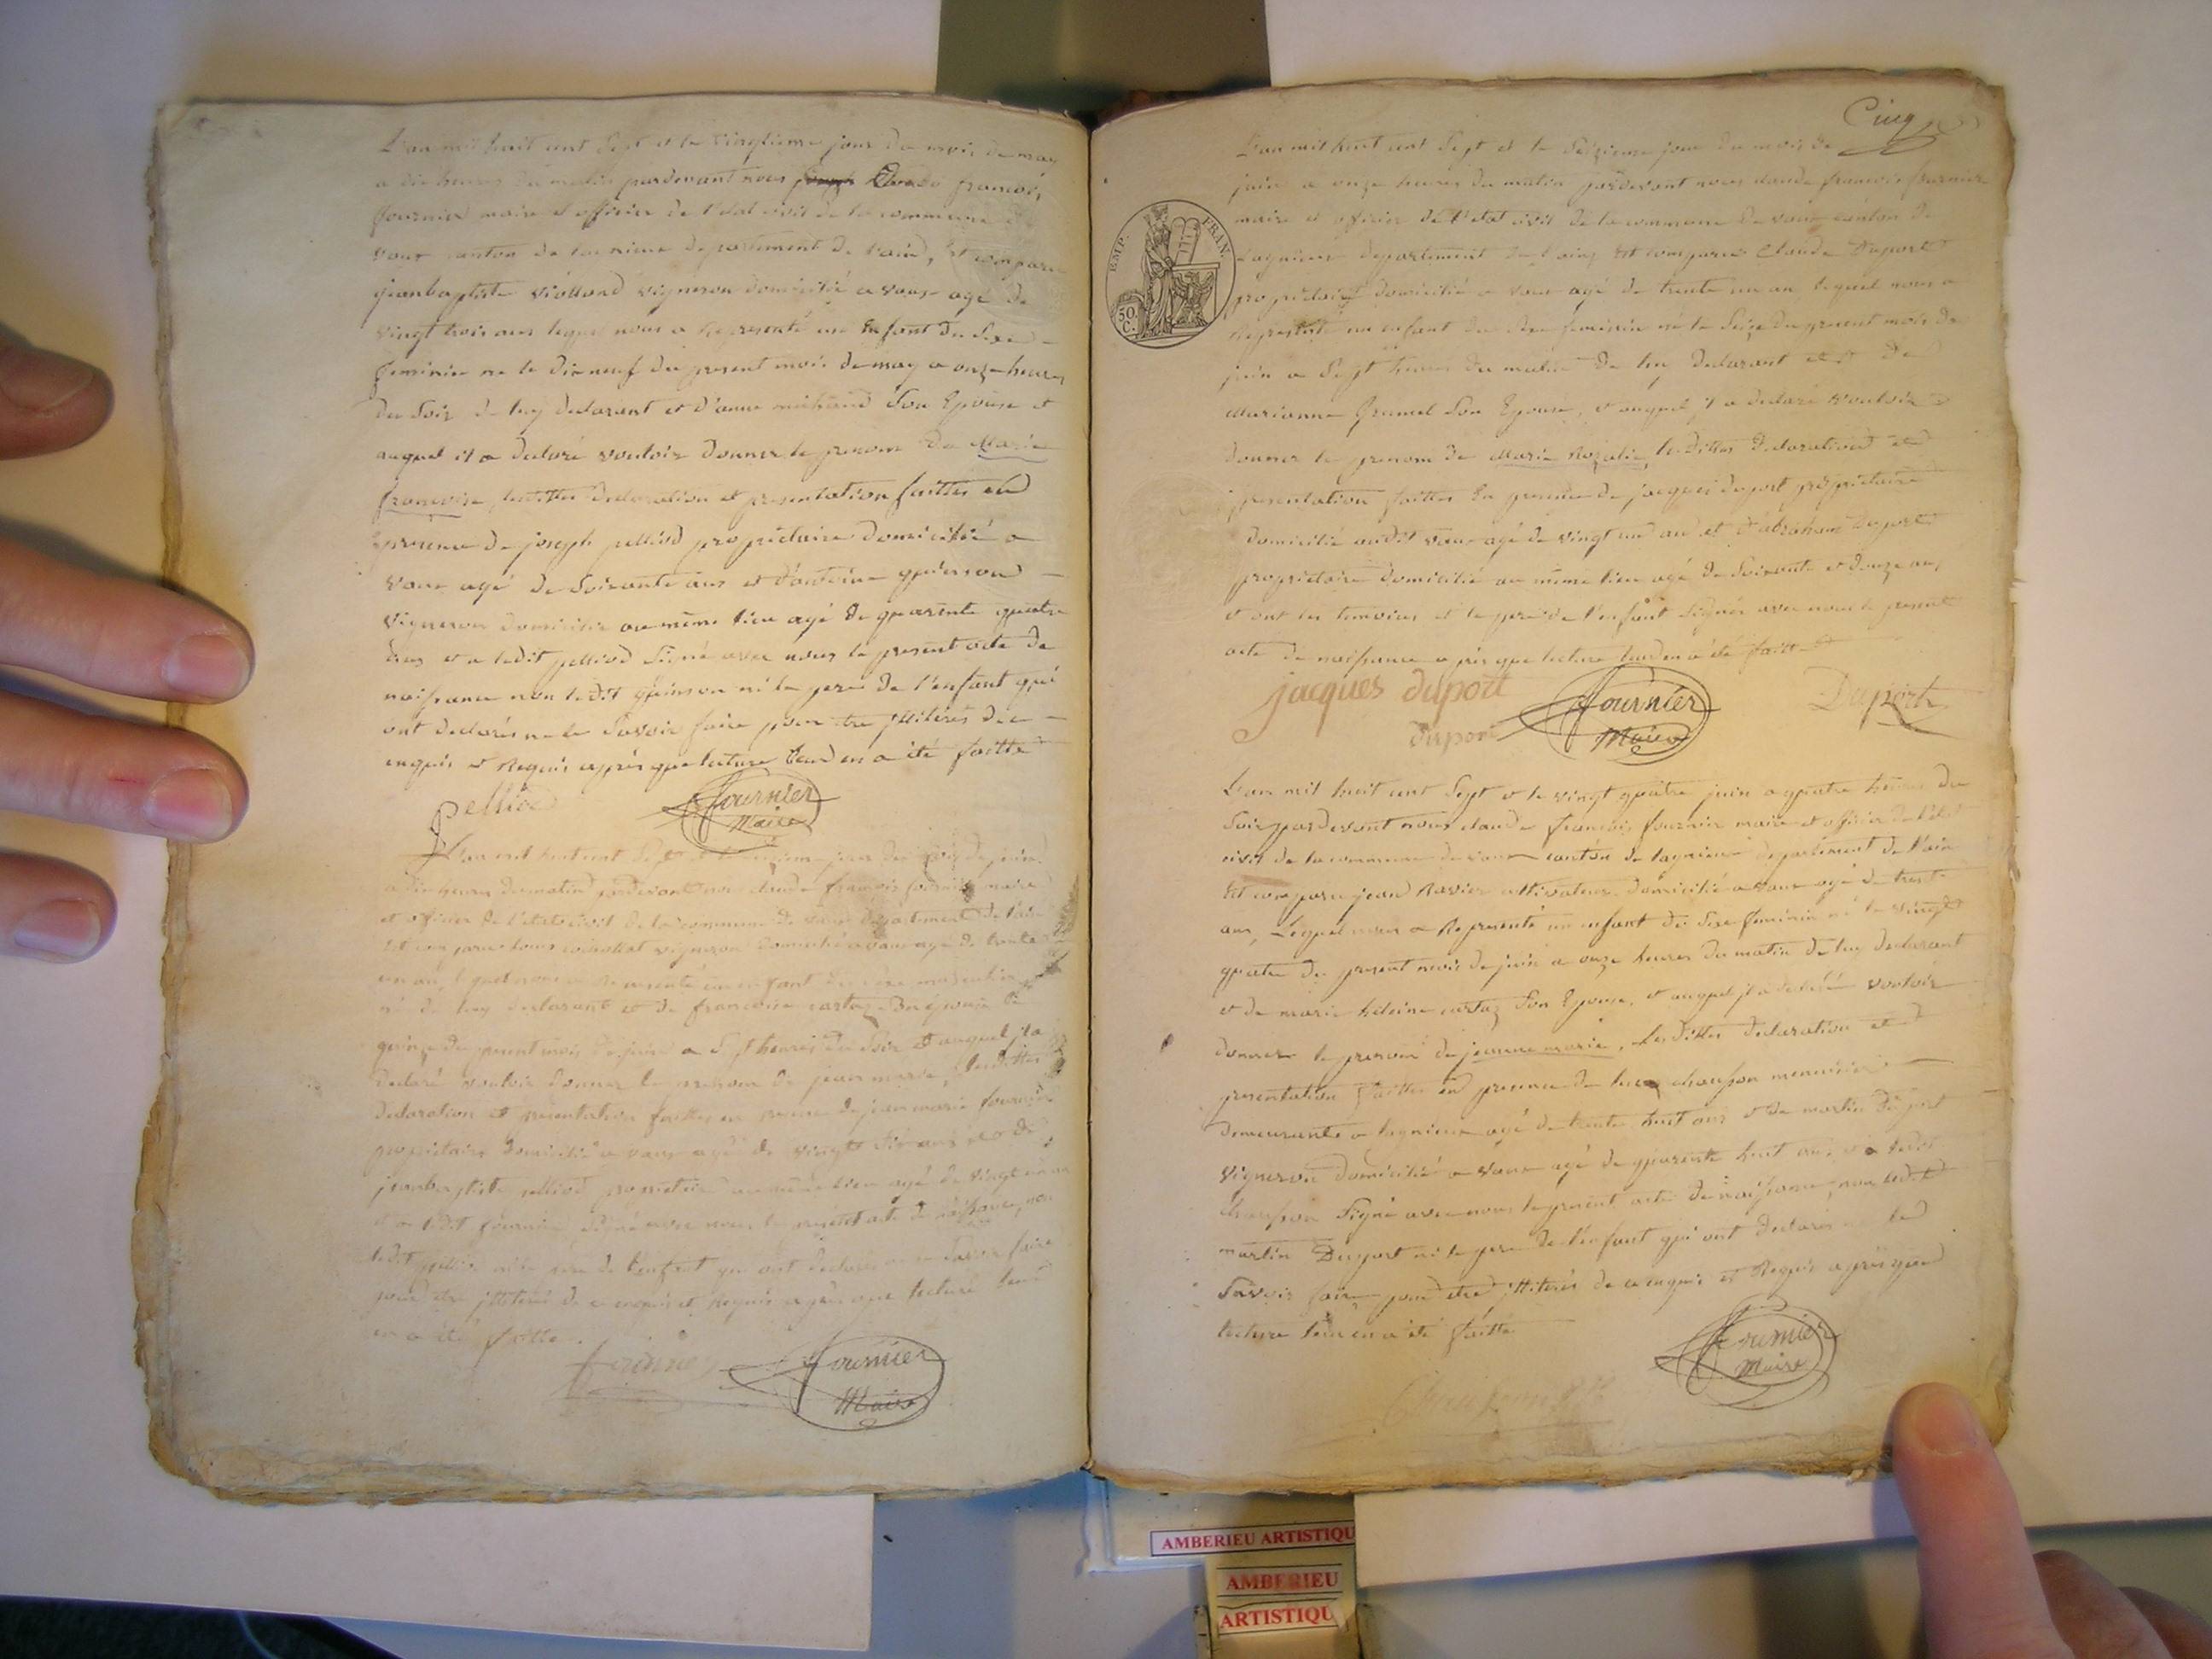 L'an mil huit cent sept et le vingtieme jour du mois de may
a dix heures du matin pardevant nous joseph Claude francois
fournier maire et officier de l'etat civil de la commune de
vaux canton de departement de l'ain, Est comparu
jeanbaptiste violland vigneron domicilié a vaux agé de
vingt trois ans lequel nous a Representé un Enfant du Sexe
feminin né le dixneuf du present mois de may a onze heures
du Soir de luy declarant et d'anne Son Epouse et
auquel il a declaré vouloir donner le prenom de Marie
francoise, lesdittes declaration et presentation faittes en
presence de joseph pelliod proprietaire domicilié a
vaux agé de Soixante ans et d'antoine guinson
vigneron domicilié au même lieu agé de quarente quatre
ans et a ledit pelliod Signé avec nous le present acte de
naissance non ledit guinson ni le pere de l'enfant qui
ont declarés ne le Savoir faire pour etre jlliterés de ce
enquis et Requis après que lecture leur en a été faitte
Pelliod
fournier
Maire
L'an mil huit cent Sept et le jour du mois de juin
a dix heures du matin pardevant nous claude francois fournier maire
et officier de l'etat civil de la commune de vaux departement de l'ain
Est comparu louis vigneron domicilié a vaux agé de trente
un an, lequel nous a Representé un enfant du sexe masculin
né de luy declarant et de francoise cartaz Son épouse le
quinze du present mois de juin a Sept heures du Soir et auquel jl a
declaré vouloir donner le prenom de jean marie, lesdittes
declaration et presentation faittes en presence de jean marie fournier
proprietaire domicilié a vaux agé de vingt Six ans et de
jeanbaptiste pelliod proprietaire au même lieu agé de vingt un an
et a ledit fournier Signé avec nous le present acte de naissance, non
ledit pelliod ni le pere de l'enfant qui ont declarés ne le Savoir faire
pour etre jlliterés de ce enquis et Requis après que lecture leur
en a été faitte.
fournier
fournier
Maire
Cinq
L'an mil huit cent Sept et le Seizieme jour du mois de
juin a onze heures du matin pardevant nous claude francois fournier
maire et officier de l'etat civil de la commune de vaux canton de
Lagnieux departement de l'ain, Est comparu Claude Duport
proprietaire domicilié a vaux agé de trente un an lequel nous a
Representé un enfant du Sexe feminin né le Seize du present mois de
juin a Sept heures du matin de luy declarant et de
Marianne Son Epouse, et auquel jl a declaré vouloir
donner le prenom de Marie Rozalie, lesdittes declaration et
presentation faittes En presence de jacques duport proprietaire
domicilié audit vaux agé de vingt un an et d'abraham duport
proprietaire domicilié au même lieu agé de Soixante et douze ans
et ont les temoins et le pere de l'enfant Signés avec nous le present
acte de naissance après que lecture leur en a été faitte
EMP. FRAN.
50. C.
jacques duport
duport
fournier
Maire
Duport
L'an mil huit cent Sept et le vingt quatre juin a quatre heures du
Soir pardevant nous claude francois fournier maire et officier de l'etat
civil de la commune de vaux canton de lagnieux departement de l'ain
Est comparu jean Ravier cultivateur domicilié a vaux agé de trente
ans, Lequel nous a Representé un enfant du Sexe feminin né le vingt
quatre du present mois de juin a onze heures du matin de luy declarant
et de marie heleine cartaz Son Epouse, et auquel jl a declaré vouloir
donner le prenom de jeanne marie, Lesdittes declaration et
presentation faittes en presence de chausson menuisier
demeurant a lagnieux agé de trente huit ans et de martin duport
vigneron domicilié a vaux agé de quarente huit ans et a ledit
chausson Signé avec nous le present acte de naissance, non ledit
martin Duport ni le pere de l'enfant qui ont declarés ne le
Savoir faire pour etre jlliterés de ce enquis et Requis après que
lecture leur en a été faitte
fournier
Maire
AMBERIEU ARTISTIQU
AMBERIEU
ARTISTIQU